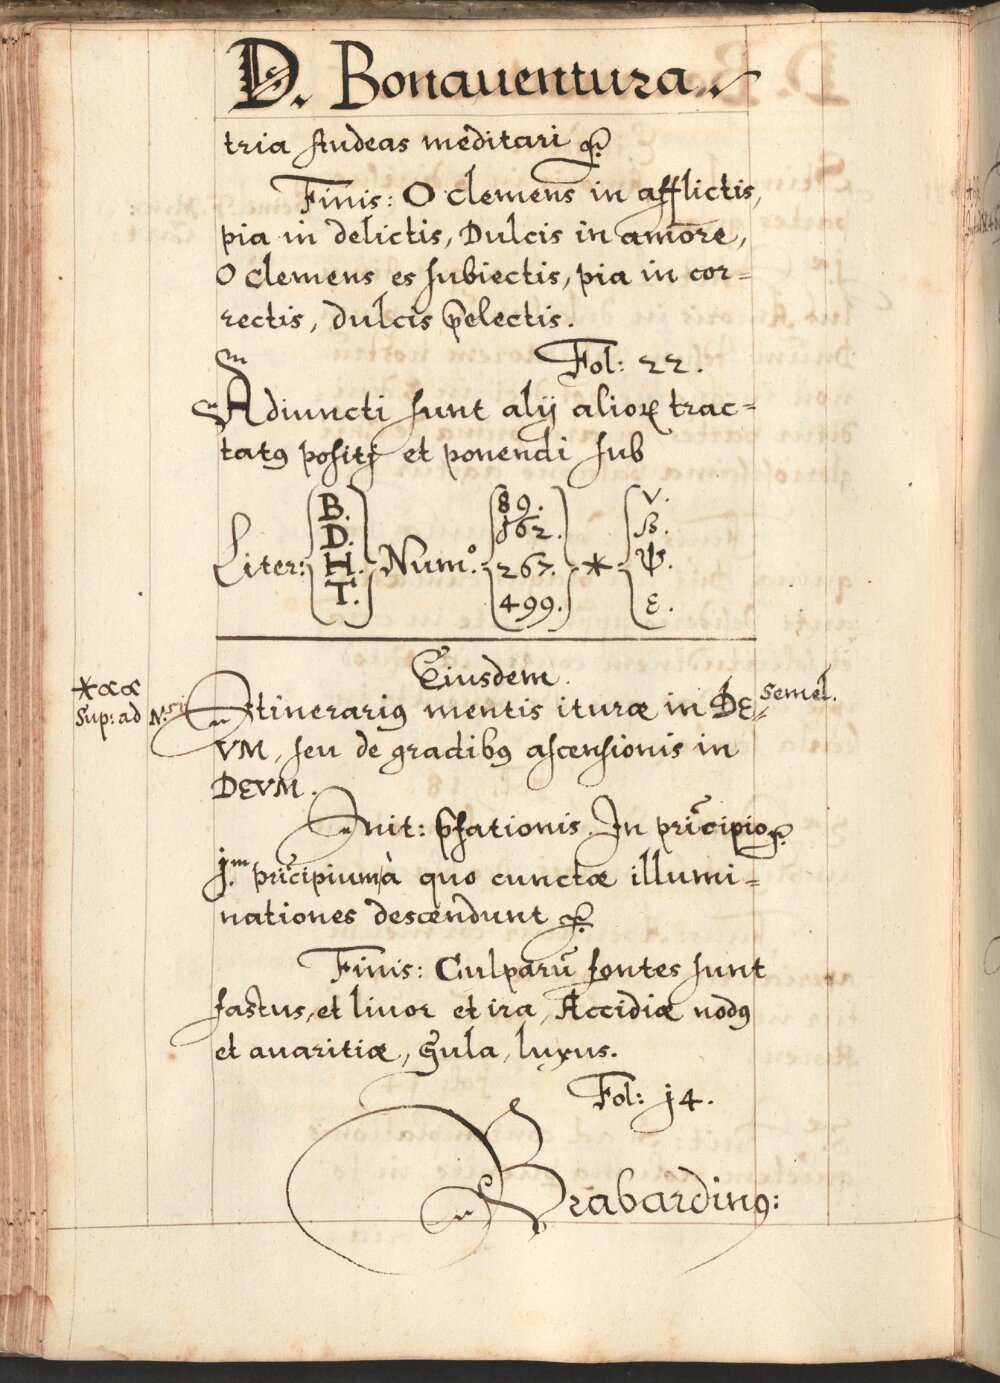 D. Bonauentura.
tria studeas meditari &c.
Finis: O clemens in afflictis,
pia in delictis, Dulcis in amore,
O clemens es subiectis, pia in cor=
rectis, dulcis p̄electis.
Fol: 22.
Adiuncti sunt alij alioꝝ trac=
tatꝰ positi et ponendi sub
Liter: B. D. H. T. Num.º 89. 162. 267. 499. * V. ß. ψ. ε.
Eiusdem.
*αα
Sup: ad N.
Itinerariꝰ mentis ituræ in DE= semel.
VM, seu de gradibꝰ ascensionis in
DEVM.
Init: p̄fationis. In pricipio &c.
j.m pricipium à quo cunctæ illumi=
nationes descendunt &c.
Finis: Culparū fontes sunt
fastus, et liuor et ira, Accidiæ nodꝰ
et auaritiæ, Gula, luxus.
Fol: j4.
Brabardinꝰ: